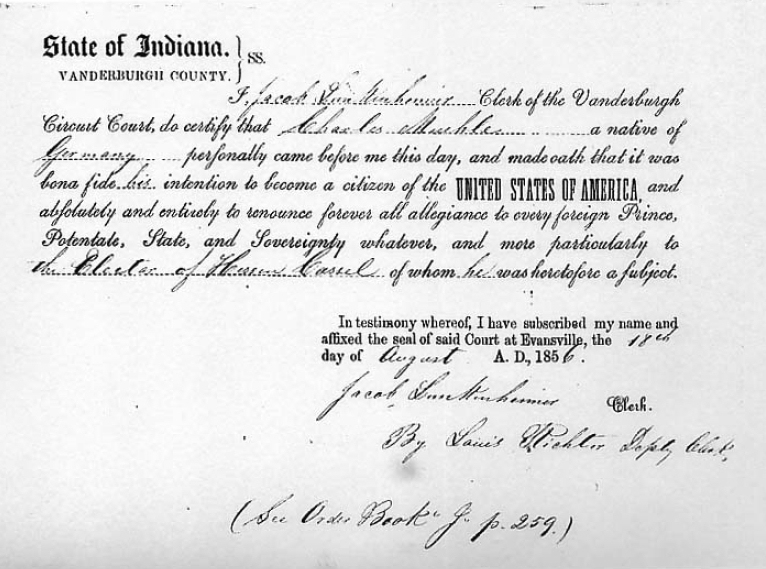 State of Indiana. } SS.
VANDERBURGH COUNTY.
I, Jacob Lunkenheimer Clerk of the Vanderburgh
Circuit Court, do certify that Charles Muehle a native of
Germany personally came before me this day, and made oath that it was
bona fide his intention to become a citizen of the UNITED STATES OF AMERICA, and
absolutely and entirely to renounce forever all allegiance to every foreign Prince,
Potentate, State, and Sovereignty whatever, and more particularly to
the Elector of Hessen Cassel of whom he was heretofore a subject.
In testimony whereof, I have subscribed my name and
affixed the seal of said Court at Evansville, the 18th
day of August A. D., 1856.
Jacob Lunkenheimer Clerk.
By Louis Richter Depty Clerk
(See Order Book J. p. 259.)